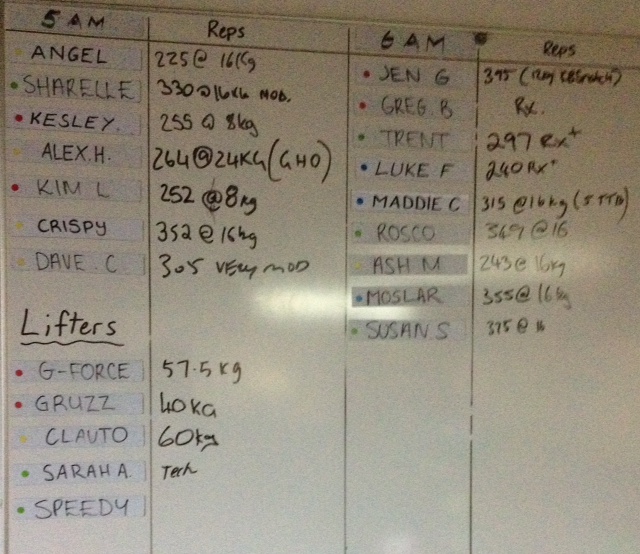 5 AM Reps
ANGEL 225@ 16Kg
SHARELLE 330@16KG MOD.
KESLEY. 255 @ 8kg
ALEX.H. 264@24KG(GHD)
KIM L 252 @8kg
CRISPY 352@16kg
DAVE.C 305 VERY MOD
Lifters
G-FORCE 57.5kg
GRUZZ 40KG
CLAUTO 60kg
SARAH A. Tech
SPEEDY
6 AM Reps
JEN G 395
GREG.B Rx.
TRENT 297 Rx+
LUKE F 240Rx+
MADDIE C 315 @16kg (5 TTB)
ROSCO 369 @16
ASH M 243@16kg
MOSLAR 355@16kg
SUSAN.S 375@16